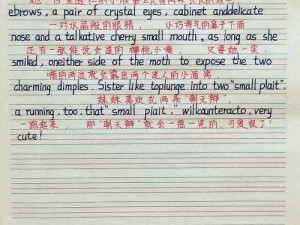 ebrows, a pair of crystal eyes, cabinet anddelicate
一对水晶般的眼睛, 小巧秀气的鼻子下面
nose and a talkative cherry small mouth, as long as she
还有一张能说会道的樱桃小嘴 只要她一笑
smiled, oneither side of the moth to expose the two
嘴的两边就会露出两个迷人的小酒窝
charming dimples. Sister like toplunge into two "small plait".
妹妹喜欢扎两条"朝天辫"
a running, too, that "small plait," willcounteracto, very
一跑起来, 那"朝天辫"就会一摇一晃的, 可爱极了
cute!